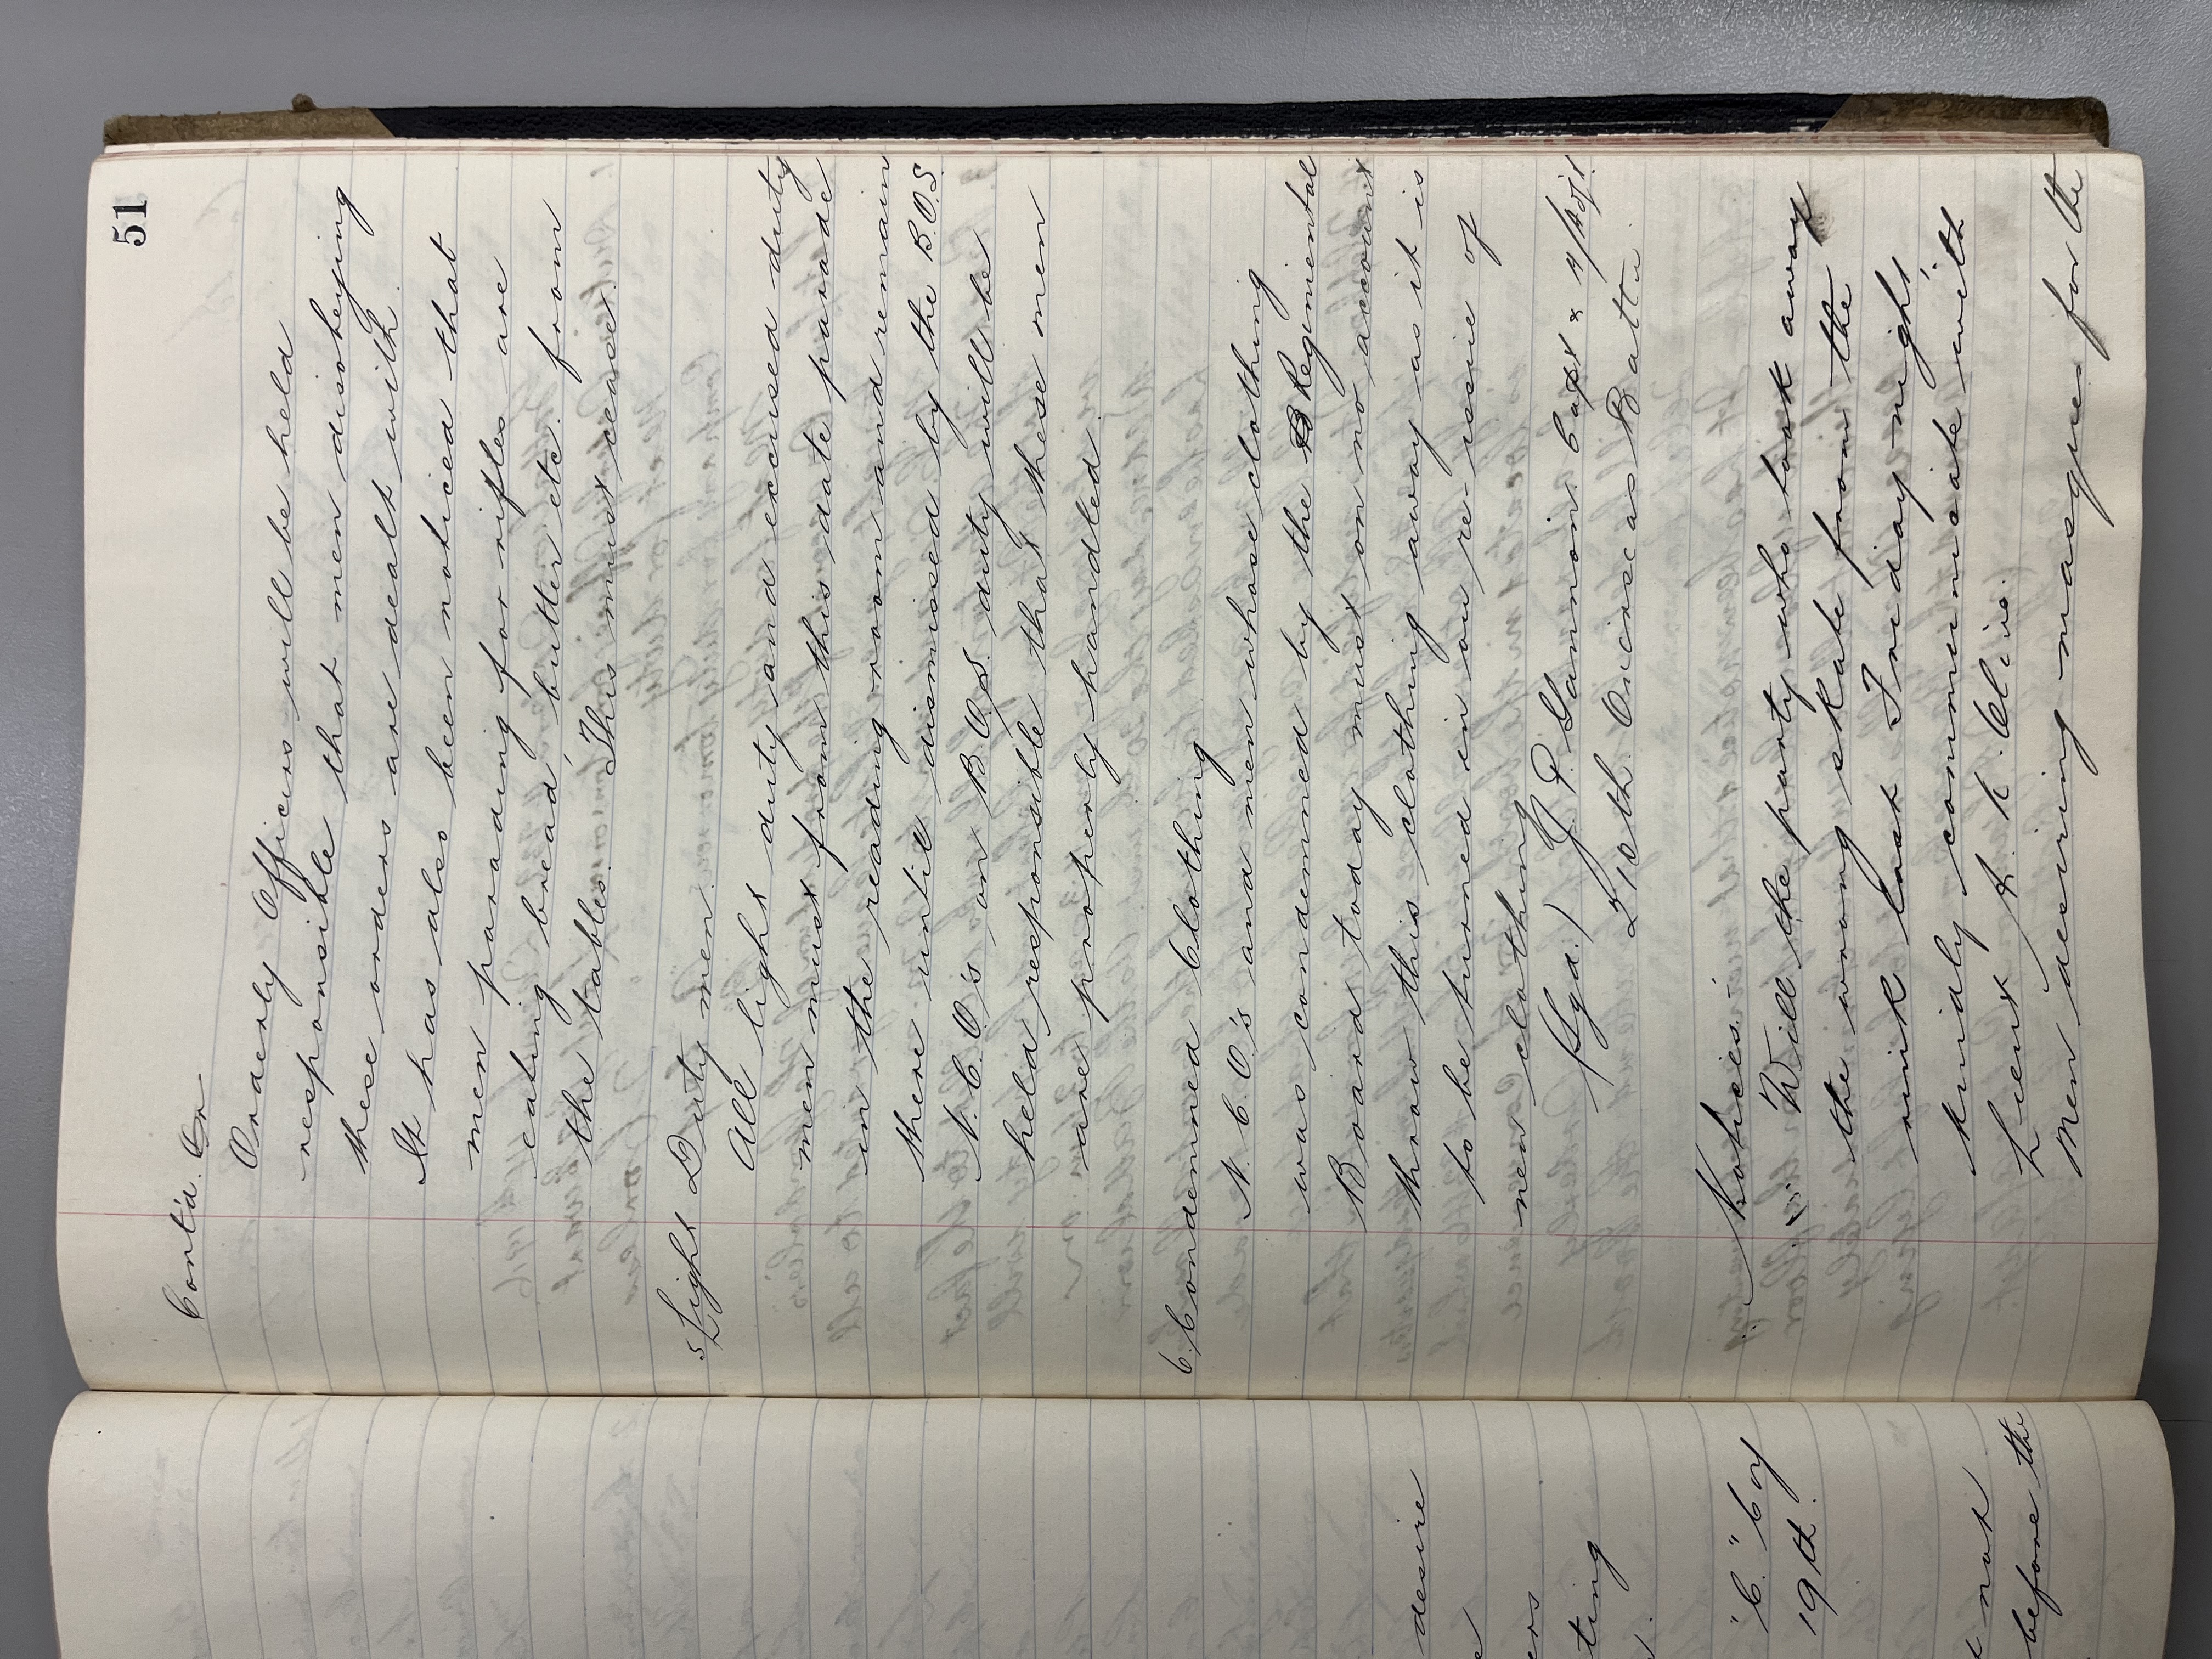 51
Cont'd. Or
Orderly Officers will be held
responsible that men disobeying
these orders are dealt with.
It has also been noticed that
men parading for rifles are
eating bread, butter etc. from
the tables. This must cease.
5 Light Duty men.
All light duty and excused duty
men must from this date parade
in the reading room and remain
there until dismissed by the B.O.S.
N.C.O's on B.O.S. duty will be
held responsible that these men
are properly handled.
6. Condemned Clothing
N.C.O's and men whose clothing
was condemned by the Regimental
Board today must on no account
throw this clothing away as it is
to be turned in on re-issue of
new clothing
(Sgd.) J. P. Gannon Capt & A/Adjt
210th. Overseas Battn.
Notices.
Will the party who took away
the wrong skate from the
rink last Friday night,
kindly communicate with
Lieut A. K. Clive.
Men desiring masques for the
desire
ers
ting
"C" Coy
19th.
not
before the